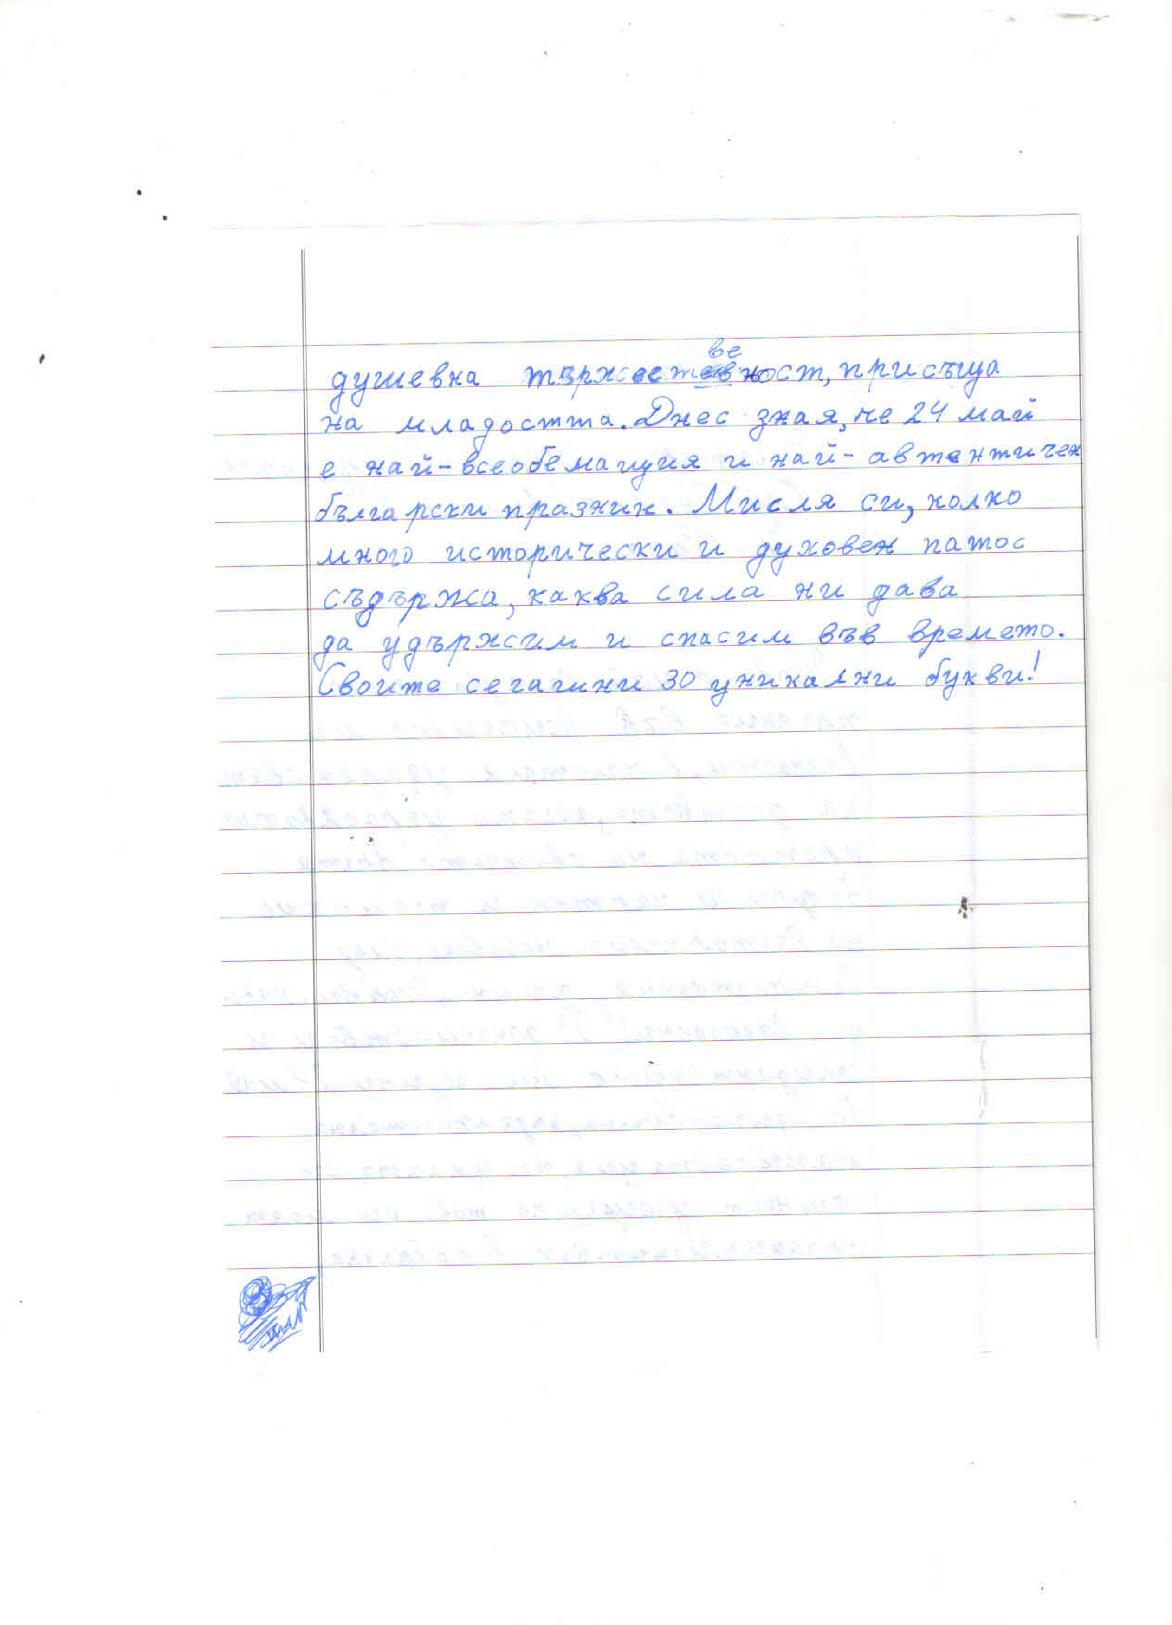 душевна тържественост, присъща
на младостта. Днес зная, че 24 май
е най-всеобемащия и най-автентичен
български празник. Мисля си, колко
много исторически и духовен патос
съдържа, каква сила ни дава
да удържим и спасим във времето.
Своите сегашни 30 уникални букви!